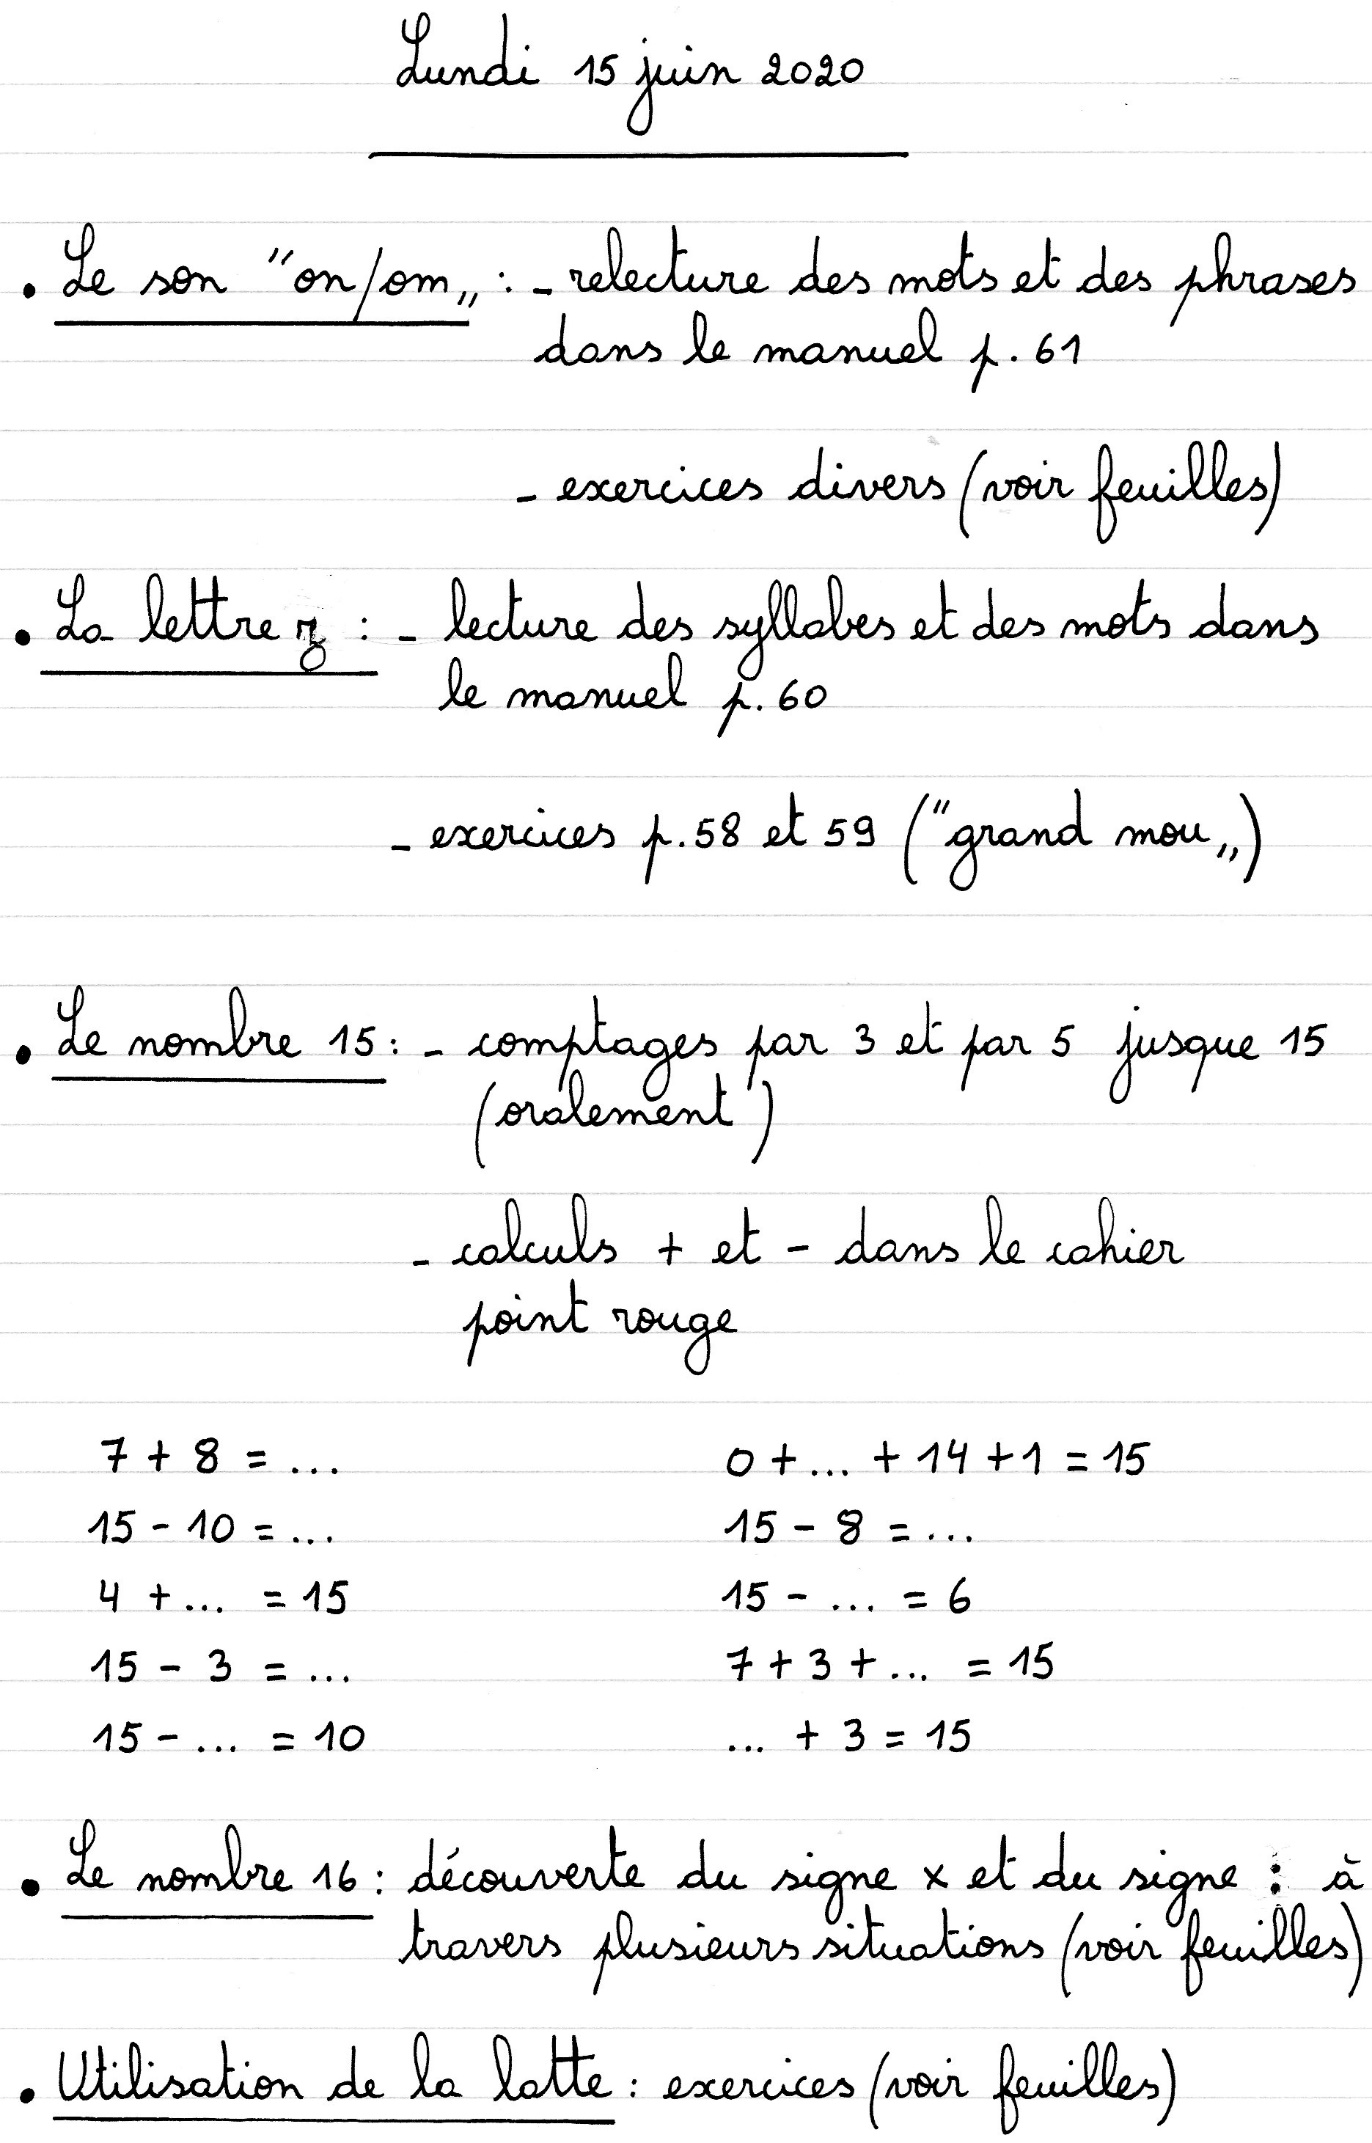 Lundi 15 juin 2020
• Le son "on/om„ : - relecture des mots et des phrases
dans le manuel p. 61
- exercices divers (voir feuilles)
• La lettre z : - lecture des syllabes et des mots dans
le manuel p. 60
- exercices p. 58 et 59 ("grand mou„)
• Le nombre 15 : - comptages par 3 et par 5 jusque 15
(oralement)
- calculs + et - dans le cahier
point rouge
7 + 8 = ...
15 - 10 = ...
4 + ... = 15
15 - 3 = ...
15 - ... = 10
0 + ... + 14 + 1 = 15
15 - 8 = ...
15 - ... = 6
7 + 3 + ... = 15
... + 3 = 15
• Le nombre 16 : découverte du signe x et du signe : à
travers plusieurs situations (voir feuilles)
• Utilisation de la latte : exercices (voir feuilles)